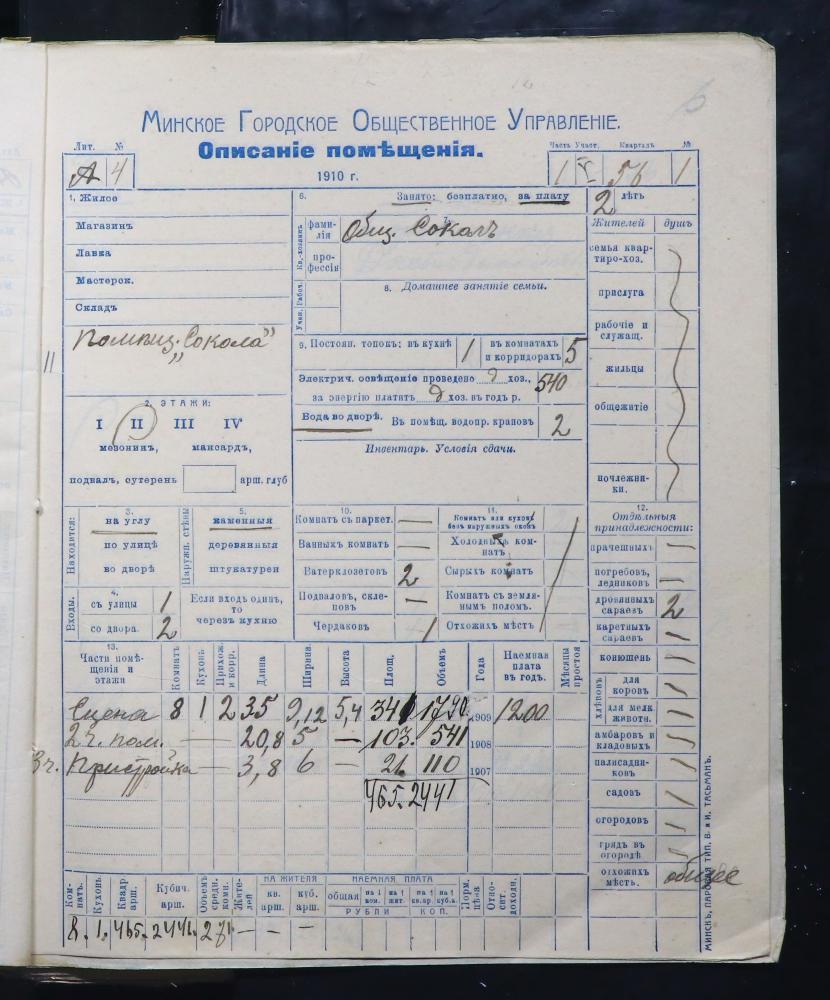 Минское Городское Общественное Управленіе.
Описаніе помѣщенія.
1910 г.
Лит. №
А 4
Часть Участ. Кварталъ №
1 56 1
1. Жилое
Магазинъ
Лавка
Мастерск.
Складъ
"Сокола"
2. ЭТАЖИ:
I II III IV
мезонинъ, мансардъ,
подвалъ, сутеренъ арш. глуб
Находится:
3.
на углу
по улицѣ
во дворѣ
Наружн. стѣны
5.
каменныя
деревянныя
штукатурен
Входы.
4.
съ улицы 1
со двора. 2
Если входъ одинъ,
то
черезъ кухню
6. Занято: безплатно, за плату 2 лѣтъ
Кв.-хозяинъ
фами-
лія
Общ. Соколъ
7.
про-
фессія
Учен. Рабоч.
8. Домашнее занятіе семьи.
9. Постоян. топокъ: въ кухнѣ 1 въ комнатахъ
и корридорахъ 5
Электрич. освѣщеніе проведено д хоз.,
за энергію платитъ д хоз. въ годъ р. 540
Вода во дворѣ. Въ помѣщ. водопр. крановъ 2
Инвентарь. Условія сдачи.
10.
Комнатъ съ паркет. —
Ванныхъ комнатъ —
Ватерклозетовъ 2
Подваловъ, скле-
повъ —
Чердаковъ 1
11.
Комнатъ или кухонь
безъ наружныхъ оконъ
Холодныхъ ком-
натъ
Сырыхъ комнатъ
Комнатъ съ земля-
нымъ поломъ.
Отхожихъ мѣстъ
Жителей душъ
семья квар-
тиро-хоз.
прислуга
рабочіе и
служащ.
жильцы
общежитіе
ночлежни-
ки.
12.
Отдѣльныя
принадлежности:
прачешныхъ —
погребовъ,
ледниковъ —
дровяныхъ
сараевъ 2
каретныхъ
сараевъ
конюшенъ
хлѣвовъ
для
коровъ
для мелк.
животн.
амбаровъ и
кладовыхъ
палисадни-
ковъ
садовъ
огородовъ
грядъ въ
огородѣ
отхожихъ
мѣстъ. общее
13.
Части помѣ-
щенія и
этажи
Комнатъ Кухонь Прихож. и корр. Длина Ширина Высота Площ. Объемъ Года Наемная плата въ годъ. Мѣсяцы простоя
Сцена 8 1 2 35 9,12 5,4 341 1790 1909 1200
2 ч. пом. — — 20,8 5 — 103. 541 1908
3 ч. Пристройка — 3,8 6 — 21 110 1907
465. 2441
Ком-
натъ. Кухонь Квадр. арш. Кубич. арш. Объемъ средн. комн. Жите-
лей
НА ЖИТЕЛЯ
кв. арш. куб. арш.
НАЕМНАЯ ПЛАТА
общая на 1 ком. на 1 жит. на 1 кв. ар. на 1 куб. а.
РУБЛИ КОП.
Норм. цѣна Отно-
сит. доходн.
8. 1. 465. 2441. 271 — — —
МИНСКЪ, ПАРОВАЯ ТИП. В. и И. ТАСЬМАНЪ.